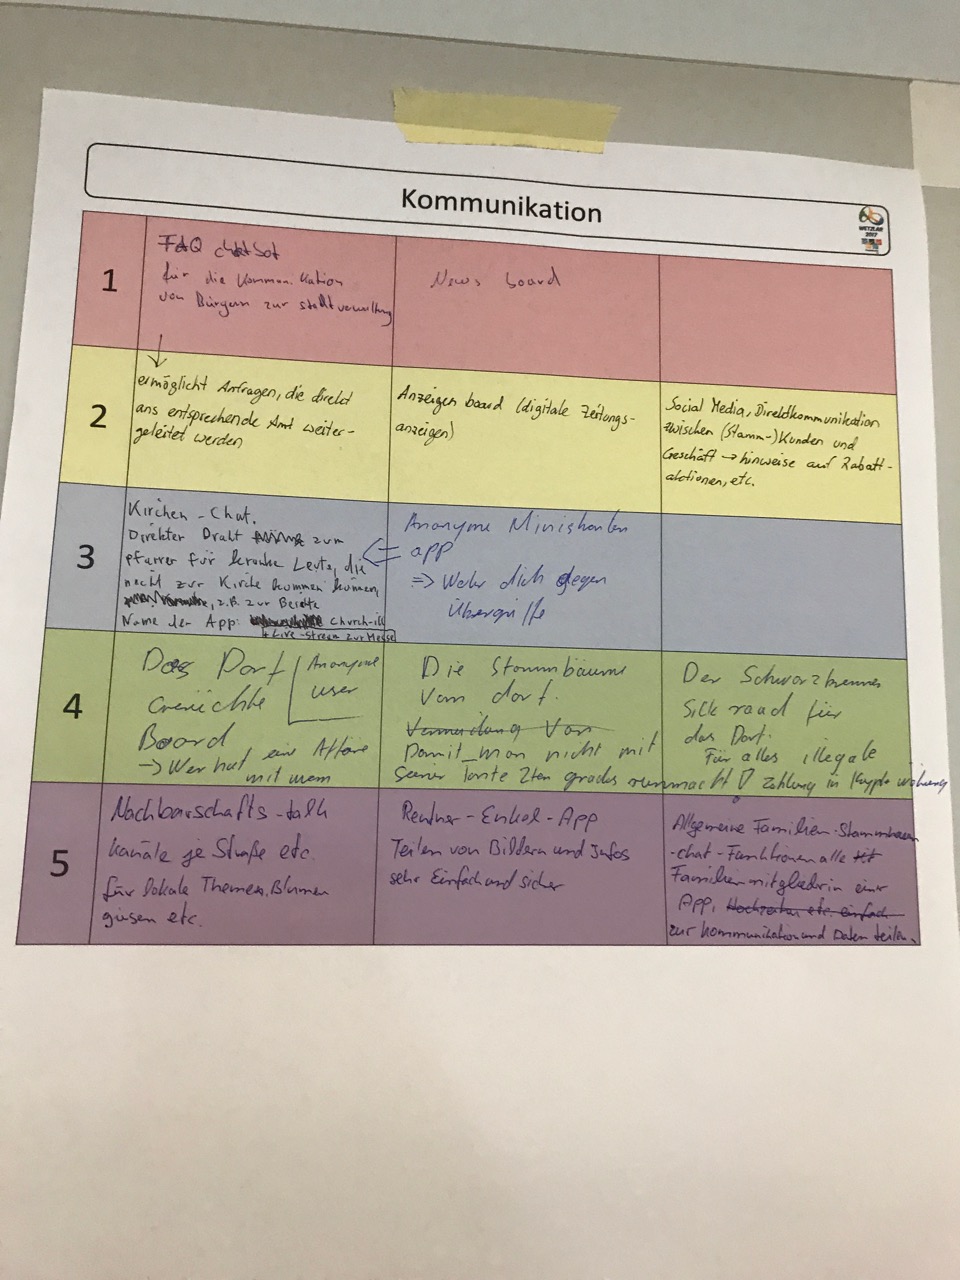 Kommunikation
WETZLAR
2017
1
FAQ chatbot
für die Kommunikation
von Bürgern zur stadtverwaltung
News board
2
ermöglicht Anfragen, die direkt
ans entsprechende Amt weiter-
geleitet werden
Anzeigen board (digitale Zeitungs-
anzeigen)
Social Media, Direktkommunikation
zwischen (Stamm-)Kunden und
Geschäft → hinweise auf Rabatt-
aktionen, etc.
3
Kirchen-Chat.
Direkter Draht zum
pfarrer für kranke Leute, die
nicht zur Kirche kommen können,
z.B. zur Beichte
Name der App: Church-ill
+ Live-Stream zur Messe
Anonyme Ministranten
app
⇒ Wehr dich gegen
Übergriffe
4
Das Dorf
Gerüchte
Board
Anonyme
user
→ Wer hat eine Affäre
mit wem
Die Stammbäume
vom dorf.
Vermeidung von
Damit man nicht mit
seiner tante 2ten grades rummacht
Der Schwarzbrenner
Silk road für
das Dorf.
Für alles illegale
Zahlung in Kryptowährung
5
Nachbarschafts-talk
Kanäle je Straße etc.
für lokale Themen, Blumen
giesen etc.
Rentner-Enkel-App
Teilen von Bildern und Infos
sehr Einfach und sicher
Allgemeine Familien-Stammbaum
-chat-Funktionen alle
Familienmitglieder in einer
App, Hochzeiten etc. einfach
zur Kommunikation und Daten teilen.